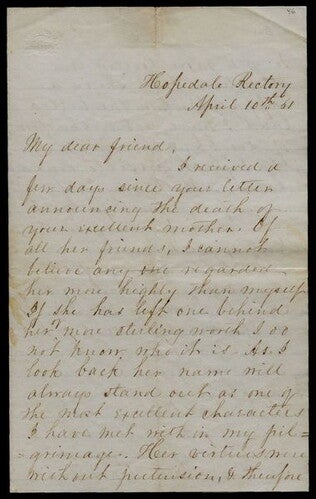 46
Hopedale Rectory
April 10th 61
My dear friend,
I recieved a
few days since your letter
announcing the death of
your excellent mother. Of
all her friends, I cannot
believe any one regarded
her more highly than myself
If she has left one behind
her more sterling worth I do
not know who it is As I
look back her name will
always stand out as one of
the most excellent characters
I have met with in my pil-
=grimage. Her virtues were
without pretension, & therefore